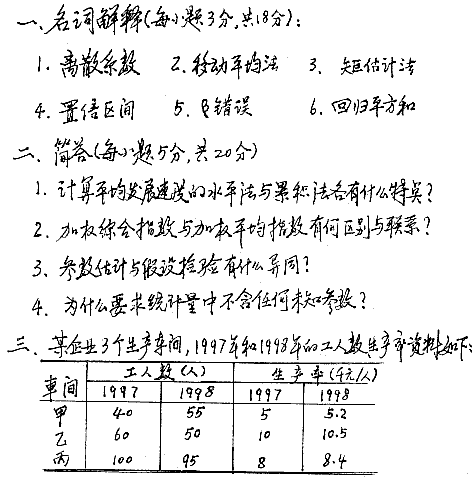 一、名词解释(每小题3分,共18分):
1. 离散系数 2. 移动平均法 3. 矩估计法
4. 置信区间 5. β错误 6. 回归平方和
二、简答(每小题5分,共20分)
1. 计算平均发展速度的水平法与累积法各有什么特点?
2. 加权综合指数与加权平均指数有何区别与联系?
3、参数估计与假设检验有什么异同?
4. 为什么要求统计量中不含任何未知参数?
三、某企业3个生产车间,1997年和1998年的工人数生产率资料如下:
车间 工人数(人) 生产率(千元/人)
1997 1998 1997 1998
甲 40 55 5 5.2
乙 60 50 10 10.5
丙 100 95 8 8.4